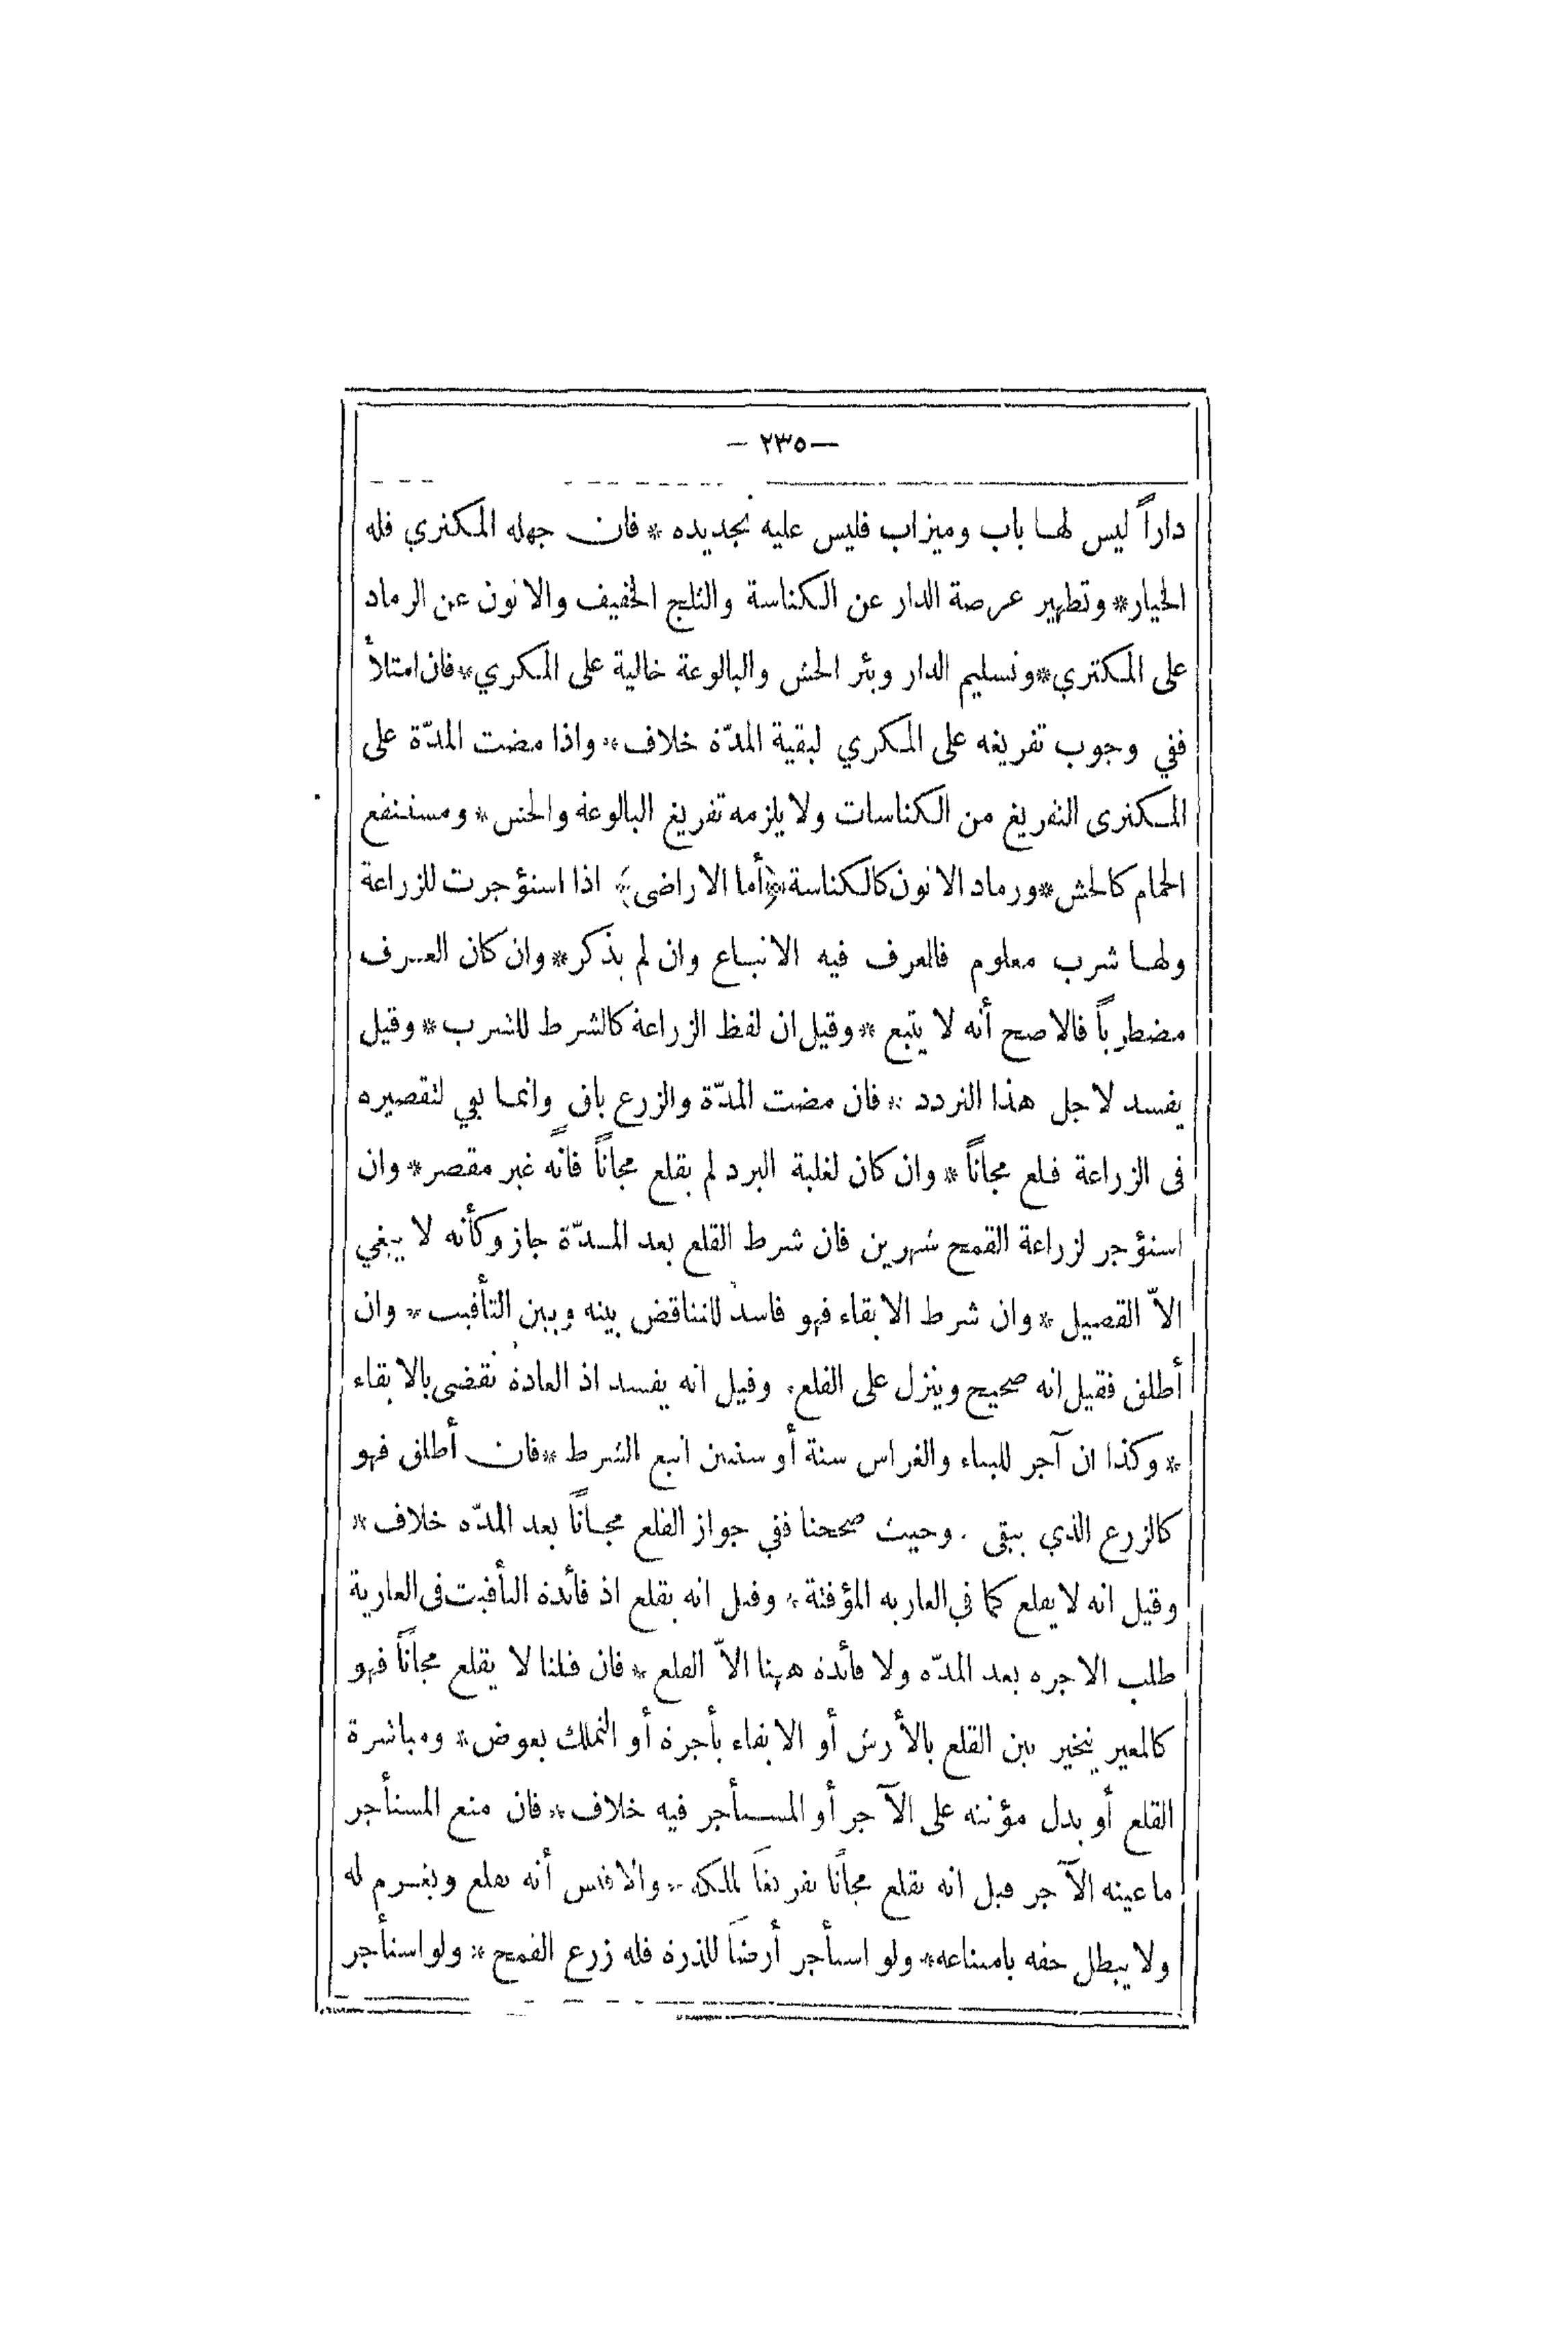 — ٢٣٥ —
داراً ليس لها باب وميزاب فليس عليه تجديده * فان جهله المكتري فله
الخيار * وتطهير عرصة الدار عن الكناسة والثلج الخفيف والاتون عن الرماد
على المكتري * وتسليم الدار وبئر الحش والبالوعة خالية على المكري * فان امتلأ
ففي وجوب تفريغه على المكري لبقية المدّة خلاف * واذا مضت المدّة على
المكترى التفريغ من الكناسات ولا يلزمه تفريغ البالوعة والحش * ومستنقع
الحمام كالحش * ورماد الاتون كالكناسة ﴿أما الاراضى﴾ اذا استؤجرت للزراعة
ولها شرب معلوم فالعرف فيه الاتباع وان لم يذكر * وان كان العرف
مضطرباً فالاصح أنه لا يتبع * وقيل ان لفظ الزراعة كالشرط للشرب * وقيل
يفسد لاجل هذا التردد * فان مضت المدّة والزرع باق وانما بقي لتقصيره
فى الزراعة قلع مجاناً * وان كان لغلبة البرد لم يقلع مجاناً فانه غير مقصر * وان
استؤجر لزراعة القمح شهرين فان شرط القلع بعد المدّة جاز وكأنه لا يبغي
الاّ القصيل * وان شرط الابقاء فهو فاسد للتناقض بينه وبين التأقيت * وان
أطلق فقيل انه صحيح وينزل على القلع * وقيل انه يفسد اذ العادة تقضى بالابقاء
* وكذا ان آجر للبناء والغراس سنة أو سنتين اتبع الشرط * فان أطلق فهو
كالزرع الذي يبقى * وحيث صححنا ففي جواز القلع مجاناً بعد المدّه خلاف *
وقيل انه لا يقلع كما في العاريه المؤقتة * وقيل انه يقلع اذ فائدة التأقيت فى العارية
طلب الاجره بعد المدّه ولا فائدة ههنا الاّ القلع * فان قلنا لا يقلع مجاناً فهو
كالمعير يتخير بين القلع بالأرش أو الابقاء بأجرة أو التملك بعوض * ومباشرة
القلع أو بدل مؤنته على الآجر أو المستأجر فيه خلاف * فان منع المستأجر
ما عينه الآجر قيل انه يقلع مجاناً تفريغاً لملكه * والاقيس أنه يقلع ويغرم له
ولا يبطل حقه بامتناعه * ولو استأجر أرضاً للذرة فله زرع القمح * ولو استأجر